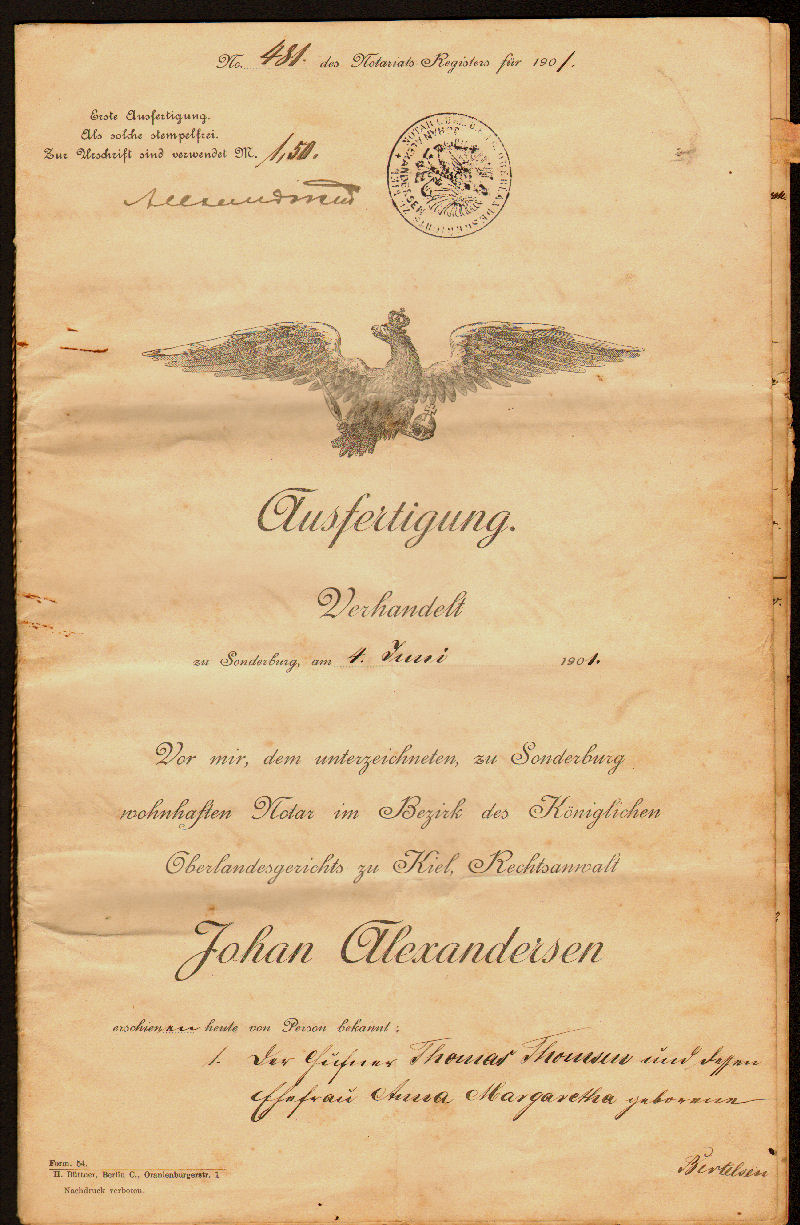 No. 481. des Notariats Registers für 1901.
Erste Ausfertigung.
Als solche stempelfrei.
Zur Urschrift sind verwendet M. 1,50.
Alexandersen
Ausfertigung.
Verhandelt
zu Sonderburg, am 4. Juni 1901.
Vor mir, dem unterzeichneten, zu Sonderburg
wohnhaften Notar im Bezirk des Königlichen
Oberlandesgerichts zu Kiel, Rechtsanwalt
Johan Alexandersen
erschienen heute von Person bekannt:
1. Der Hufner Thomas Thomsen und dessen
Ehefrau Anna Margaretha geborene
Bertelsen
Form. 54.
H. Büttner, Berlin C., Oranienburgerstr. 1
Nachdruck verboten.